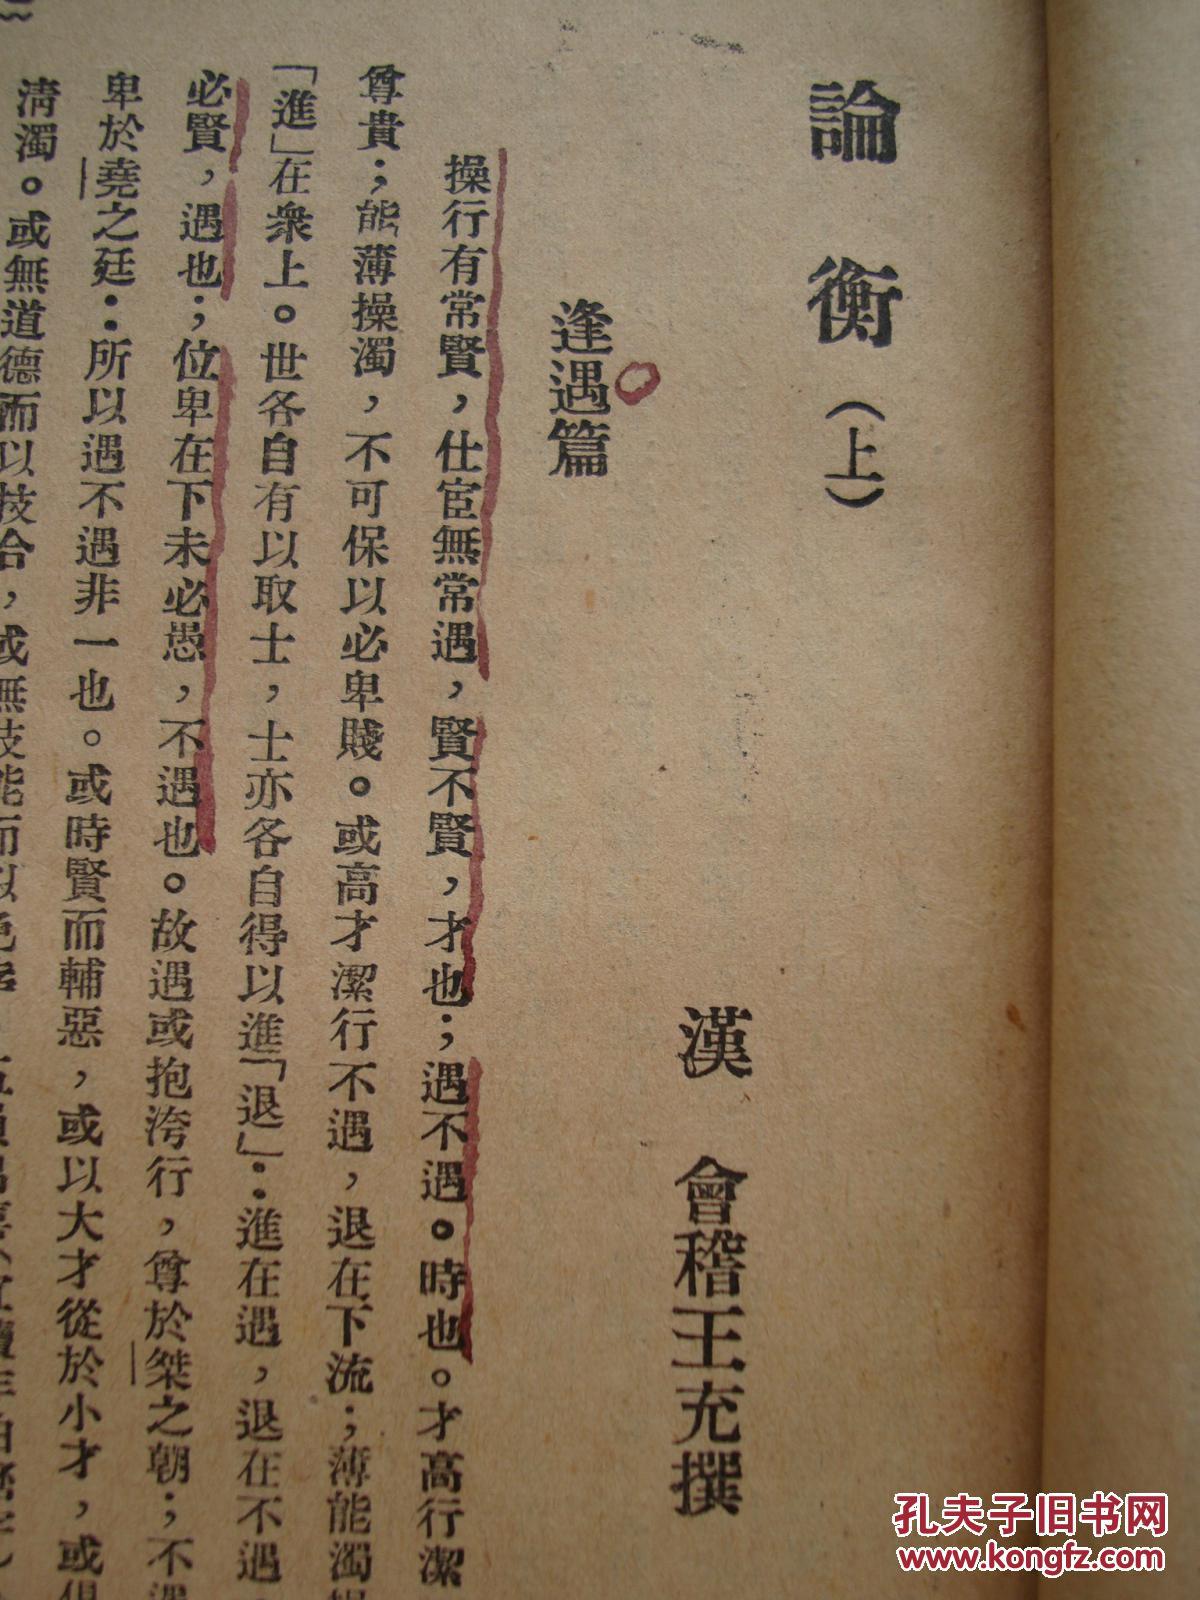 論衡（上）
漢　會稽王充撰
逢遇篇
操行有常賢，仕宦無常遇，賢不賢，才也；遇不遇。時也。才高行潔
尊貴；能薄操濁，不可保以必卑賤。或高才潔行不遇，退在下流；薄能濁操
「進」在衆上。世各自有以取士，士亦各自得以進「退」：進在遇，退在不遇
必賢，遇也；位卑在下未必愚，不遇也。故遇或抱洿行，尊於桀之朝；不遇
卑於堯之廷：所以遇不遇非一也。或時賢而輔惡，或以大才從於小才，或俱
清濁。或無道德而以技合，或無技能而以色幸
孔夫子旧书网
www.kongfz.com